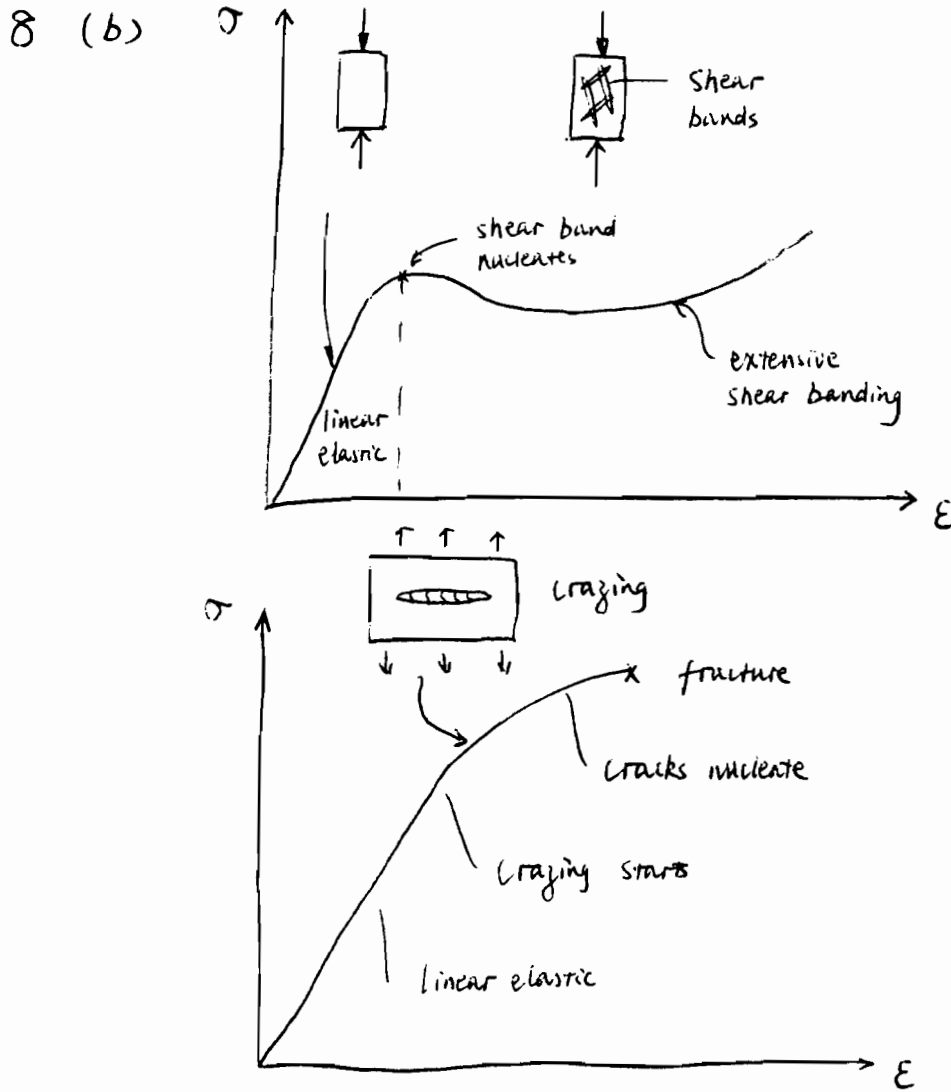 8 (b)
σ
shear
bands
shear band
nucleates
extensive
shear banding
linear
elastic
ε
crazing
σ
fracture
cracks nucleate
crazing starts
linear elastic
ε